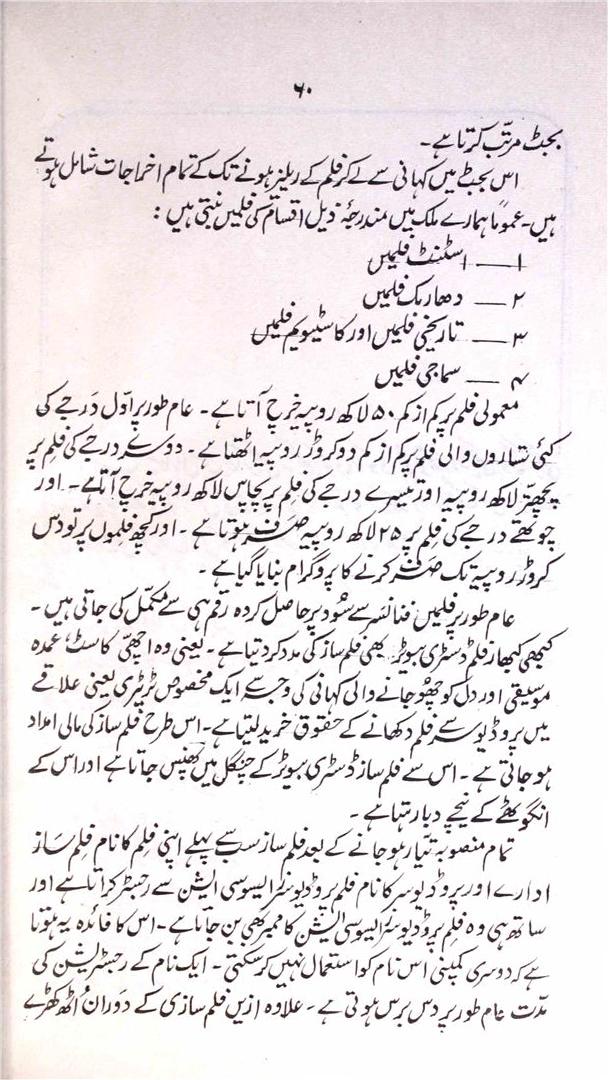 ۶۰
بجٹ مرتّب کرتا ہے۔
اس بجٹ میں کہانی سے لے کر فلم کے ریلیز ہونے تک کے تمام اخراجات شامل ہوتے
ہیں۔ عموماً ہمارے ملک میں مندرجۂ ذیل اقسام کی فلمیں بنتی ہیں :
۱ — اسٹنٹ فلمیں
۲ — دھارمک فلمیں
۳ — تاریخی فلمیں اور کاسٹیوم فلمیں
۴ — سماجی فلمیں
معمولی فلم پر کم از کم ۵۰ لاکھ روپیہ خرچ آتا ہے۔ عام طور پر اوّل درجے کی
کئی ستاروں والی فلم پر کم از کم دو کروڑ روپیہ اٹھتا ہے۔ دوسرے درجے کی فلم پر
پچھتّر لاکھ روپیہ اور تیسرے درجے کی فلم پر پچاس لاکھ روپیہ خرچ آتا ہے۔ اور
چوتھے درجے کی فلم پر ۲۵ لاکھ روپیہ صرف ہوتا ہے۔ اور کچھ فلموں پر تو دس
کروڑ روپیہ تک صرف کرنے کا پروگرام بنایا گیا ہے۔
عام طور پر فلمیں فنانسر سے سُود پر حاصل کردہ رقم ہی سے مکمّل کی جاتی ہیں۔
کبھی کبھار فلم ڈسٹری بیوٹر بھی فلم ساز کی مدد کر دیتا ہے۔ یعنی وہ اچھّی کاسٹ، عمدہ
موسیقی اور دل کو چھُو جانے والی کہانی کی وجہ سے ایک مخصوص ٹریٹری یعنی علاقے
میں پروڈیوسر سے فلم دکھانے کے حقوق خرید لیتا ہے۔ اس طرح فلم ساز کی مالی امداد
ہو جاتی ہے۔ اس سے فلم ساز ڈسٹری بیوٹر کے چنگل میں پھنس جاتا ہے اور اس کے
انگوٹھے کے نیچے دبا رہتا ہے۔
تمام منصوبہ تیّار ہو جانے کے بعد فلم ساز سب سے پہلے اپنی فلم کا نام فلم ساز
ادارے اور پروڈیوسر کا نام فلم پروڈیوسرز ایسوسی ایشن سے رجسٹر کراتا ہے اور
ساتھ ہی وہ فلم پروڈیوسرز ایسوسی ایشن کا ممبر بھی بن جاتا ہے۔ اس کا فائدہ یہ ہوتا
ہے کہ دوسری کمپنی اس نام کو استعمال نہیں کر سکتی۔ ایک نام کے رجسٹریشن کی
مدّت عام طور پر دس برس ہوتی ہے۔ علاوہ ازیں فلم سازی کے دَوران اُٹھ کھڑے